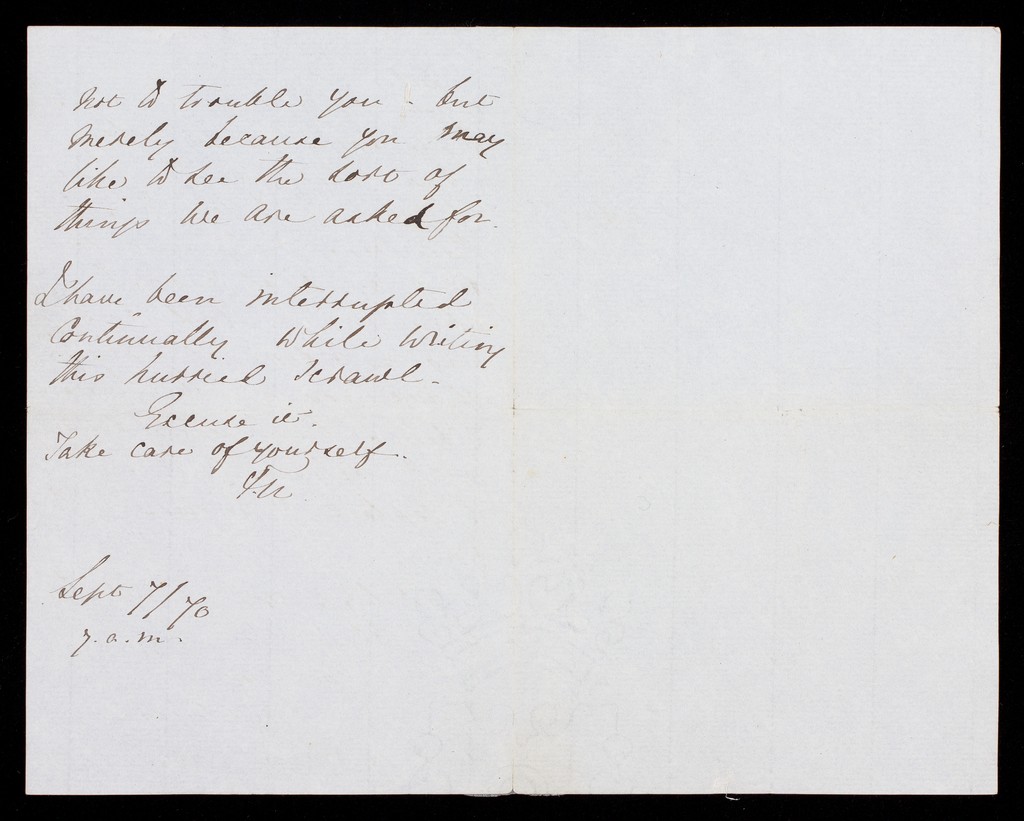 not to trouble you - but
merely because you may
like to see the sort of
things we are asked for.
I have been interrupted
continually while writing
this hurried scrawl -
Excuse it.
Take care of yourself.
F.N.
Sept 7/70
7. a. m.